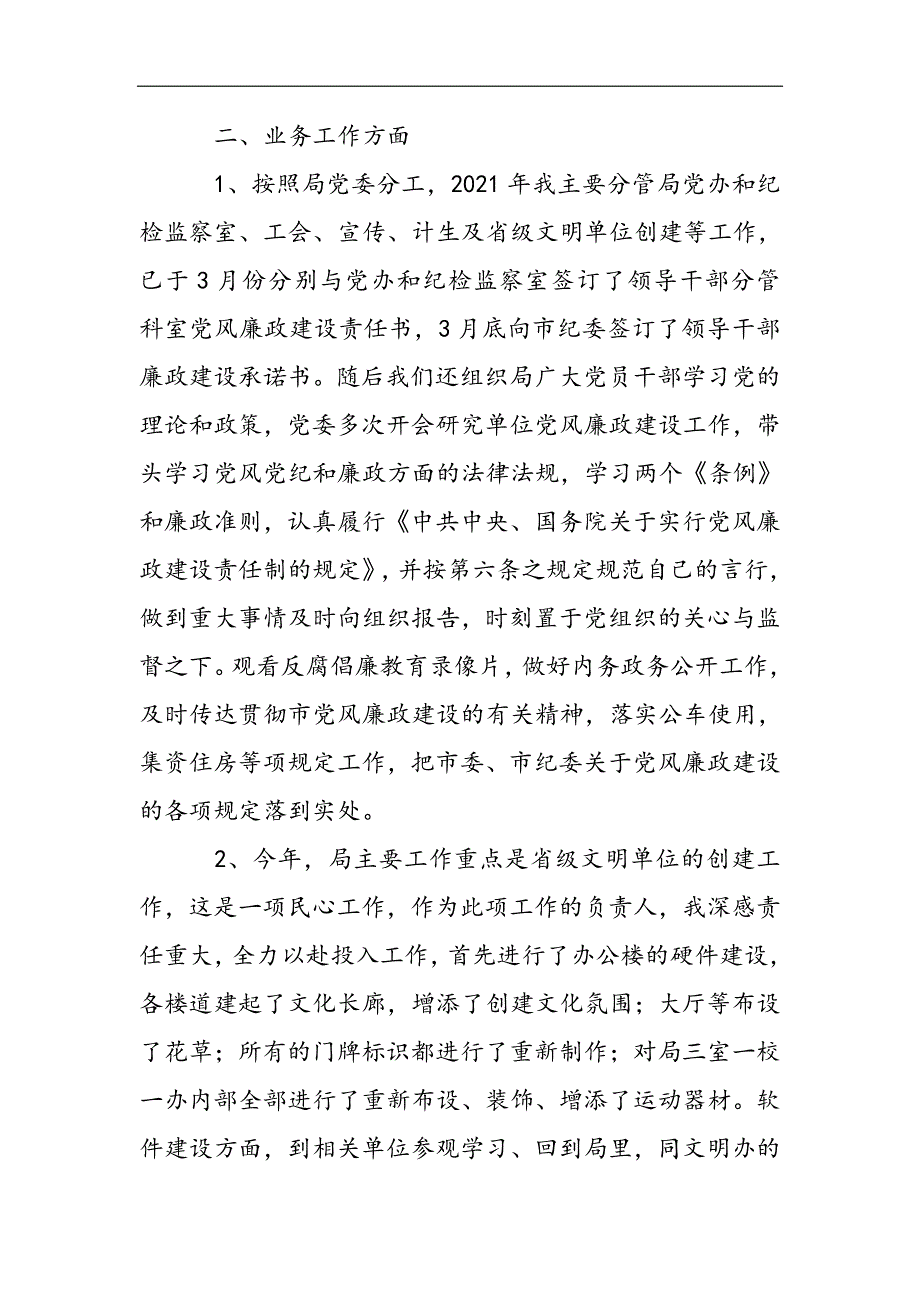 二、业务工作方面
1、按照局党委分工，2021年我主要分管局党办和纪
检监察室、工会、宣传、计生及省级文明单位创建等工作，
已于3月份分别与党办和纪检监察室签订了领导干部分管
科室党风廉政建设责任书，3月底向市纪委签订了领导干部
廉政建设承诺书。随后我们还组织局广大党员干部学习党的
理论和政策，党委多次开会研究单位党风廉政建设工作，带
头学习党风党纪和廉政方面的法律法规，学习两个《条例》
和廉政准则，认真履行《中共中央、国务院关于实行党风廉
政建设责任制的规定》，并按第六条之规定规范自己的言行，
做到重大事情及时向组织报告，时刻置于党组织的关心与监
督之下。观看反腐倡廉教育录像片，做好内务政务公开工作，
及时传达贯彻市党风廉政建设的有关精神，落实公车使用，
集资住房等项规定工作，把市委、市纪委关于党风廉政建设
的各项规定落到实处。
2、今年，局主要工作重点是省级文明单位的创建工
作，这是一项民心工作，作为此项工作的负责人，我深感责
任重大，全力以赴投入工作，首先进行了办公楼的硬件建设，
各楼道建起了文化长廊，增添了创建文化氛围；大厅等布设
了花草；所有的门牌标识都进行了重新制作；对局三室一校
一办内部全部进行了重新布设、装饰、增添了运动器材。软
件建设方面，到相关单位参观学习、回到局里，同文明办的